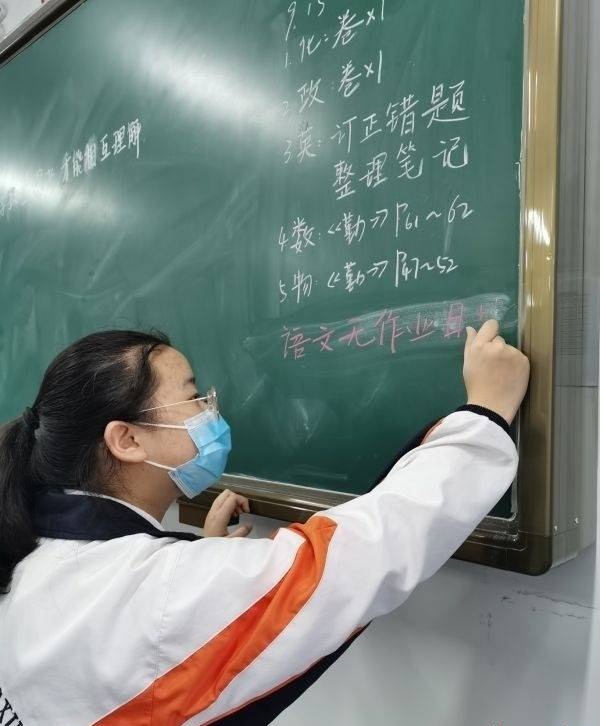 9.15
1.化:卷×1
2.政:卷×1
3英:订正错题
整理笔记
4数:《勤》P61~62
5物:《勤》P47~52
语文无作业日
才能相互理解